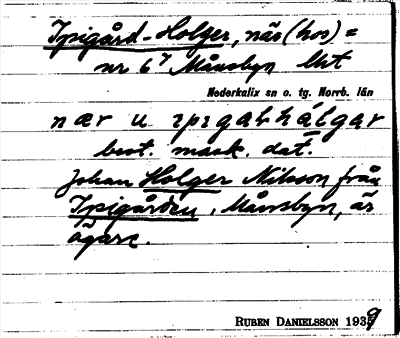 Ipigård-Holger, när (hos) =
nr 6⁷ Månsbyn Mt
Nederkalix sn o. tg. Norrb. län
nær u ɪpɪgaʟhálgar
best. mask. dat.
Johan Holger Nilsson från
Ipigården, Månsbyn, är
ägare.
RUBEN DANIELSSON 1939